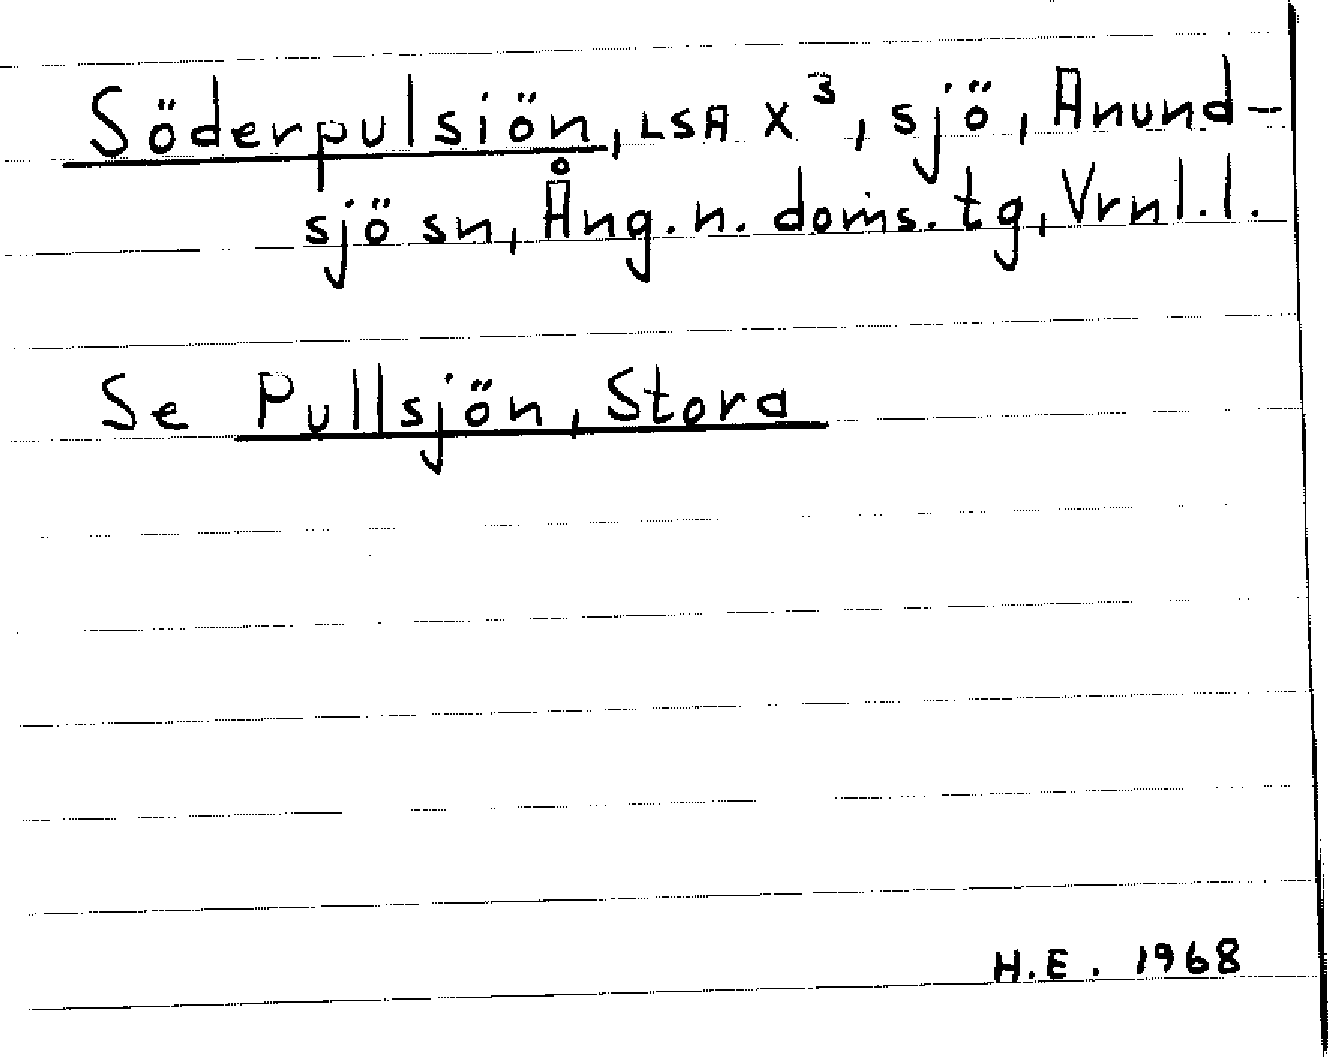 Söderpulsiön, LSA X³, sjö, Anund-
sjö sn, Ång. n. doms. tg, Vrnl. l.
Se Pullsjön, Stora
H.E. 1968